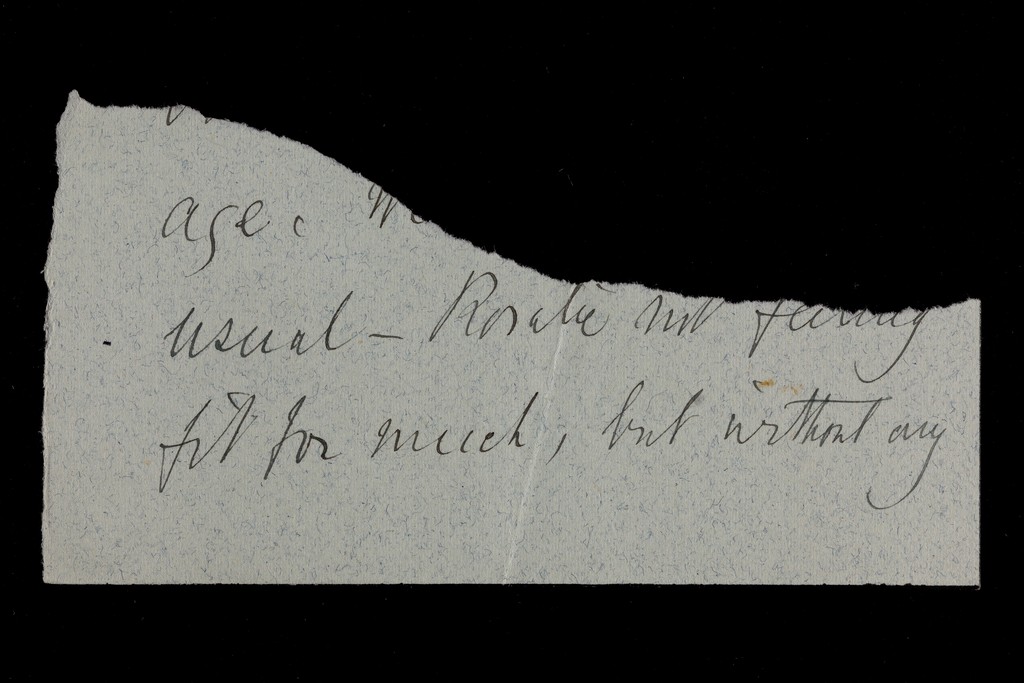 age. We
usual – Rosalie not feeling
fit for much, but without any